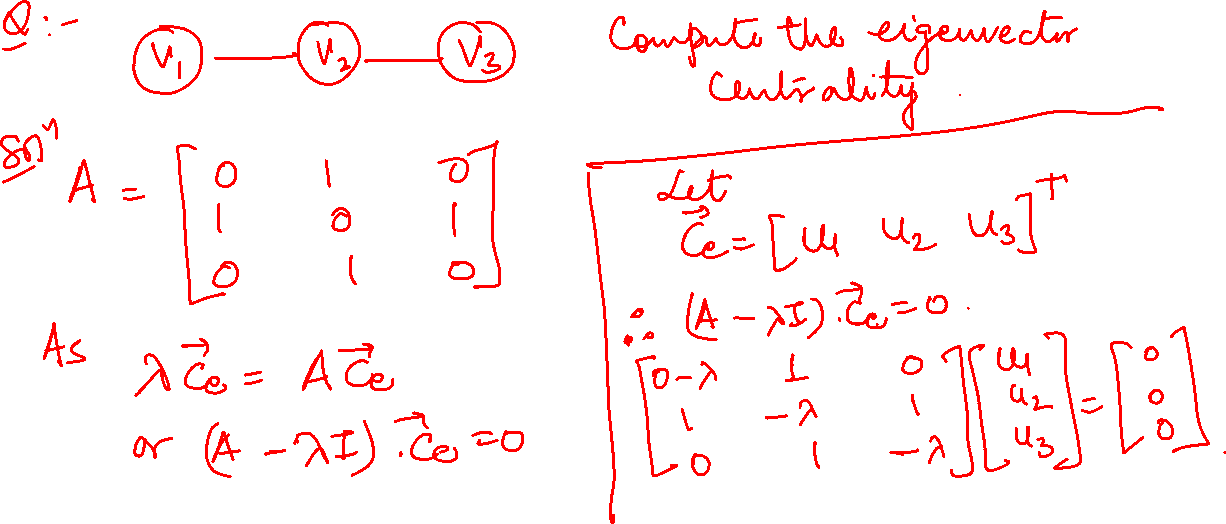 Q:-
V₁ — V₂ — V₃
Compute the eigenvector
Centrality.
Solⁿ
A = [ 0 1 0
1 0 1
0 1 0 ]
As
λC⃗e = AC⃗e
or (A - λI).C⃗e = 0
Let
C⃗e = [u₁ u₂ u₃]ᵀ
∴ (A - λI).C⃗e = 0.
[ 0-λ 1 0 ] [ u₁ ] = [ 0 ]
[ 1 -λ 1 ] [ u₂ ] = [ 0 ]
[ 0 1 -λ ] [ u₃ ] = [ 0 ].